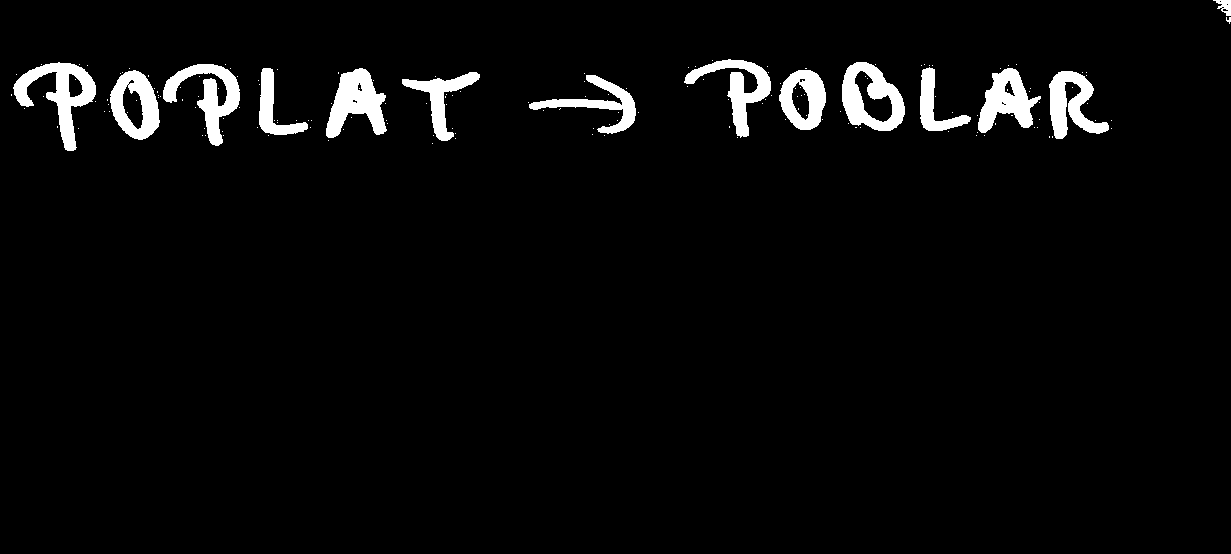 POPLAT → POBLAR